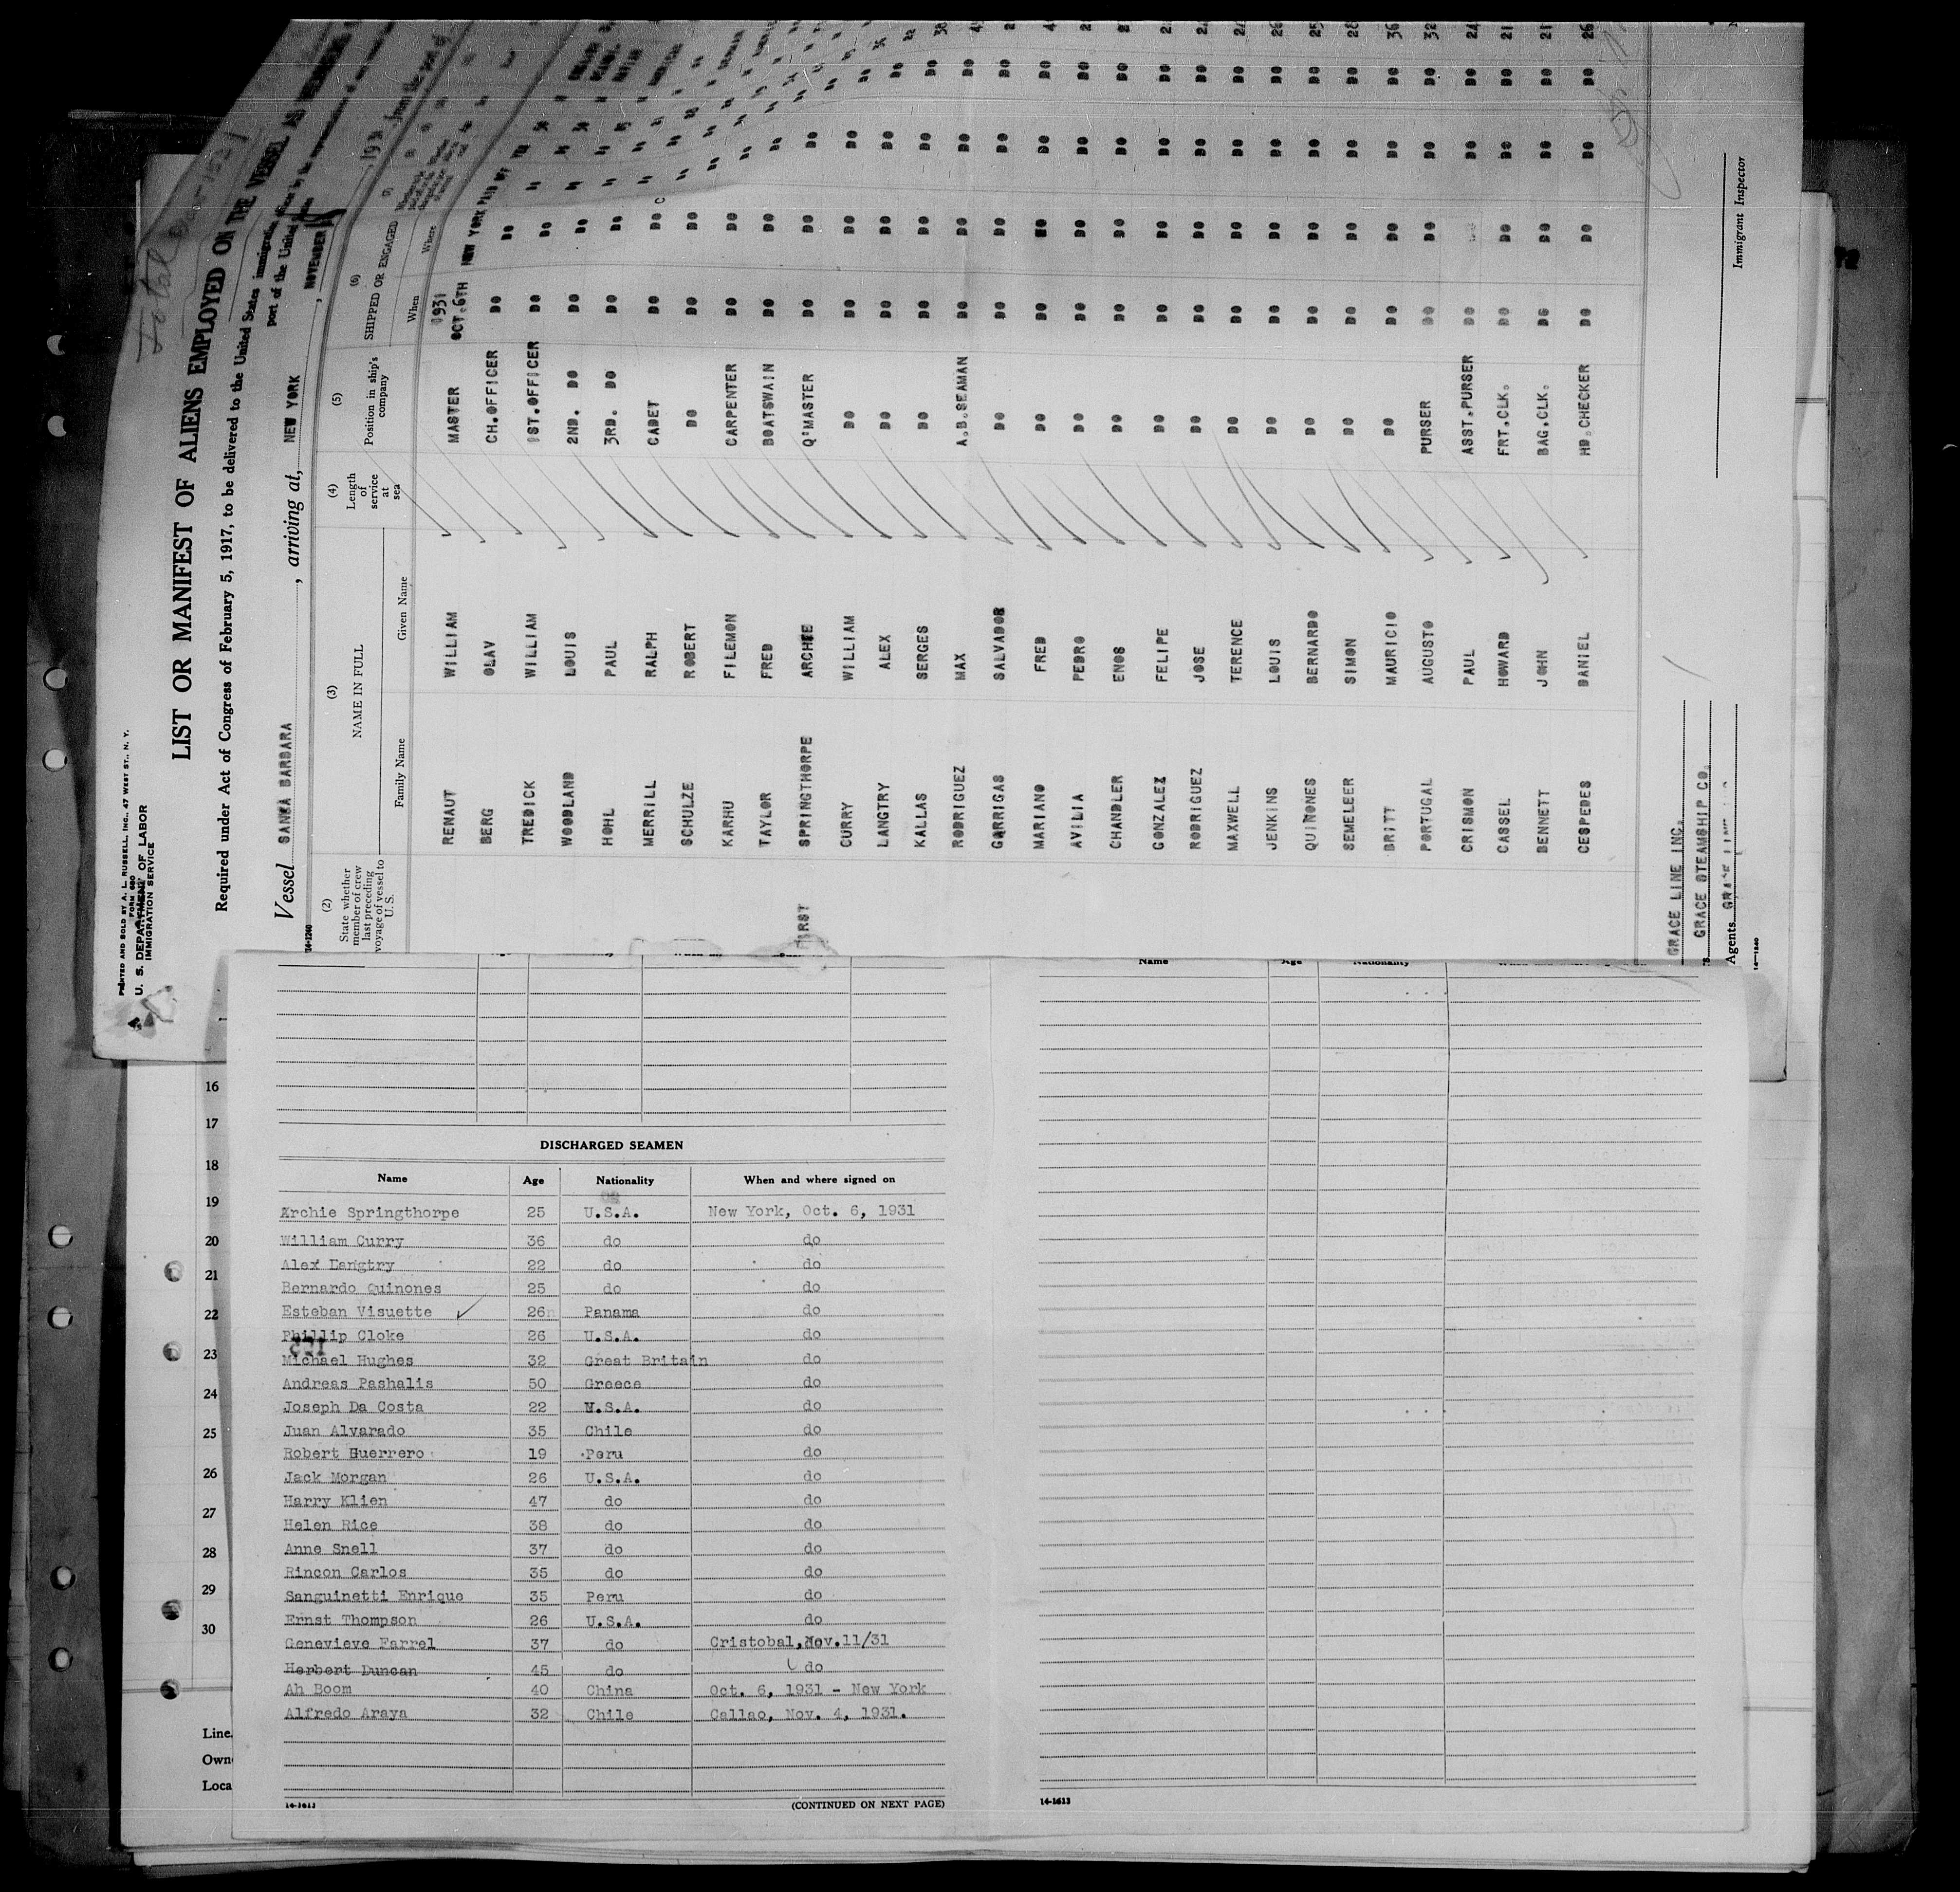 PRINTED AND SOLD BY A. L. RUSSELL, INC., 47 WEST ST., N. Y.
FORM 680
U. S. DEPARTMENT OF LABOR
IMMIGRATION SERVICE
LIST OR MANIFEST OF ALIENS EMPLOYED ON THE VESSEL AS
Required under Act of Congress of February 5, 1917, to be delivered to the United States immigration
port of the United
Vessel SANTA BARBARA, arriving at, NEW YORK, NOVEMBER , 193 , from the port of
14-1240
(2) (3) (4) (5) (6)
State whether member of crew last preceding voyage of vessel to U.S.
NAME IN FULL
Family Name Given Name
Length of service at sea
Position in ship's company
SHIPPED OR ENGAGED
When Where
RENAUT WILLIAM MASTER 1931 OCT.6TH NEW YORK
BERG OLAV CH.OFFICER DO DO
TREDICK WILLIAM 1ST.OFFICER DO DO
WOODLAND LOUIS 2ND. DO DO DO
HOHL PAUL 3RD. DO DO DO
MERRILL RALPH CADET DO DO
SCHULZE ROBERT DO DO DO
KARHU FILEMON CARPENTER DO DO
TAYLOR FRED BOATSWAIN DO DO
FIRST SPRINGTHORPE ARCHIE Q'MASTER DO DO DO
CURRY WILLIAM DO DO DO DO
LANGTRY ALEX DO DO DO DO
KALLAS SERGES DO DO DO DO DO
RODRIGUEZ MAX A.B.SEAMAN DO DO DO DO
GARRIGAS SALVADOR DO DO DO DO DO
MARIANO FRED DO DO DO DO DO
AVILIA PEDRO DO DO DO DO DO
CHANDLER ENOS DO DO DO DO DO
GONZALEZ FELIPE DO DO DO DO DO
RODRIGUEZ JOSE DO DO DO DO DO
MAXWELL TERENCE DO DO DO DO DO
JENKINS LOUIS DO DO DO DO DO
QUINONES BERNARDO DO DO DO DO DO 25
SEMELEER SIMON DO DO DO DO DO 28
BRITT MAURICIO DO DO DO DO DO 36
PORTUGAL AUGUSTO PURSER DO DO DO DO 32
CRISMON PAUL ASST.PURSER DO DO DO
CASSEL HOWARD FRT.CLK. DO DO DO DO 21
BENNETT JOHN BAG.CLK. DO DO DO DO 21
CESPEDES DANIEL HD.CHECKER DO DO DO DO 26
GRACE LINE INC.
GRACE STEAMSHIP CO.
Agents GRACE LINE
14-1240
Immigrant Inspector
16
17
18
19
20
21
22
23
24
25
26
27
28
29
30
Line
Own
Loca
DISCHARGED SEAMEN
Name Age Nationality When and where signed on
Archie Springthorpe 25 U.S.A. New York, Oct. 6, 1931
William Curry 36 do do
Alex Langtry 22 do do
Bernardo Quinones 25 do do
Esteban Visuette 26 Panama do
Phillip Cloke 26 U.S.A. do
Michael Hughes 32 Great Britain do
Andreas Pashalis 50 Greece do
Joseph Da Costa 22 U.S.A. do
Juan Alvarado 35 Chile do
Robert Guerrero 19 Peru do
Jack Morgan 26 U.S.A. do
Harry Klien 47 do do
Helen Rice 38 do do
Anne Snell 37 do do
Rincon Carlos 35 do do
Sanguinetti Enrique 35 Peru do
Ernst Thompson 26 U.S.A. do
Genevieve Farrel 37 do Cristobal, Nov.11/31
Herbert Duncan 45 do do
Ah Boom 40 China Oct. 6, 1931 - New York
Alfredo Araya 32 Chile Callao, Nov. 4, 1931.
14-1613 (CONTINUED ON NEXT PAGE)
Name Age Nationality
14-1613